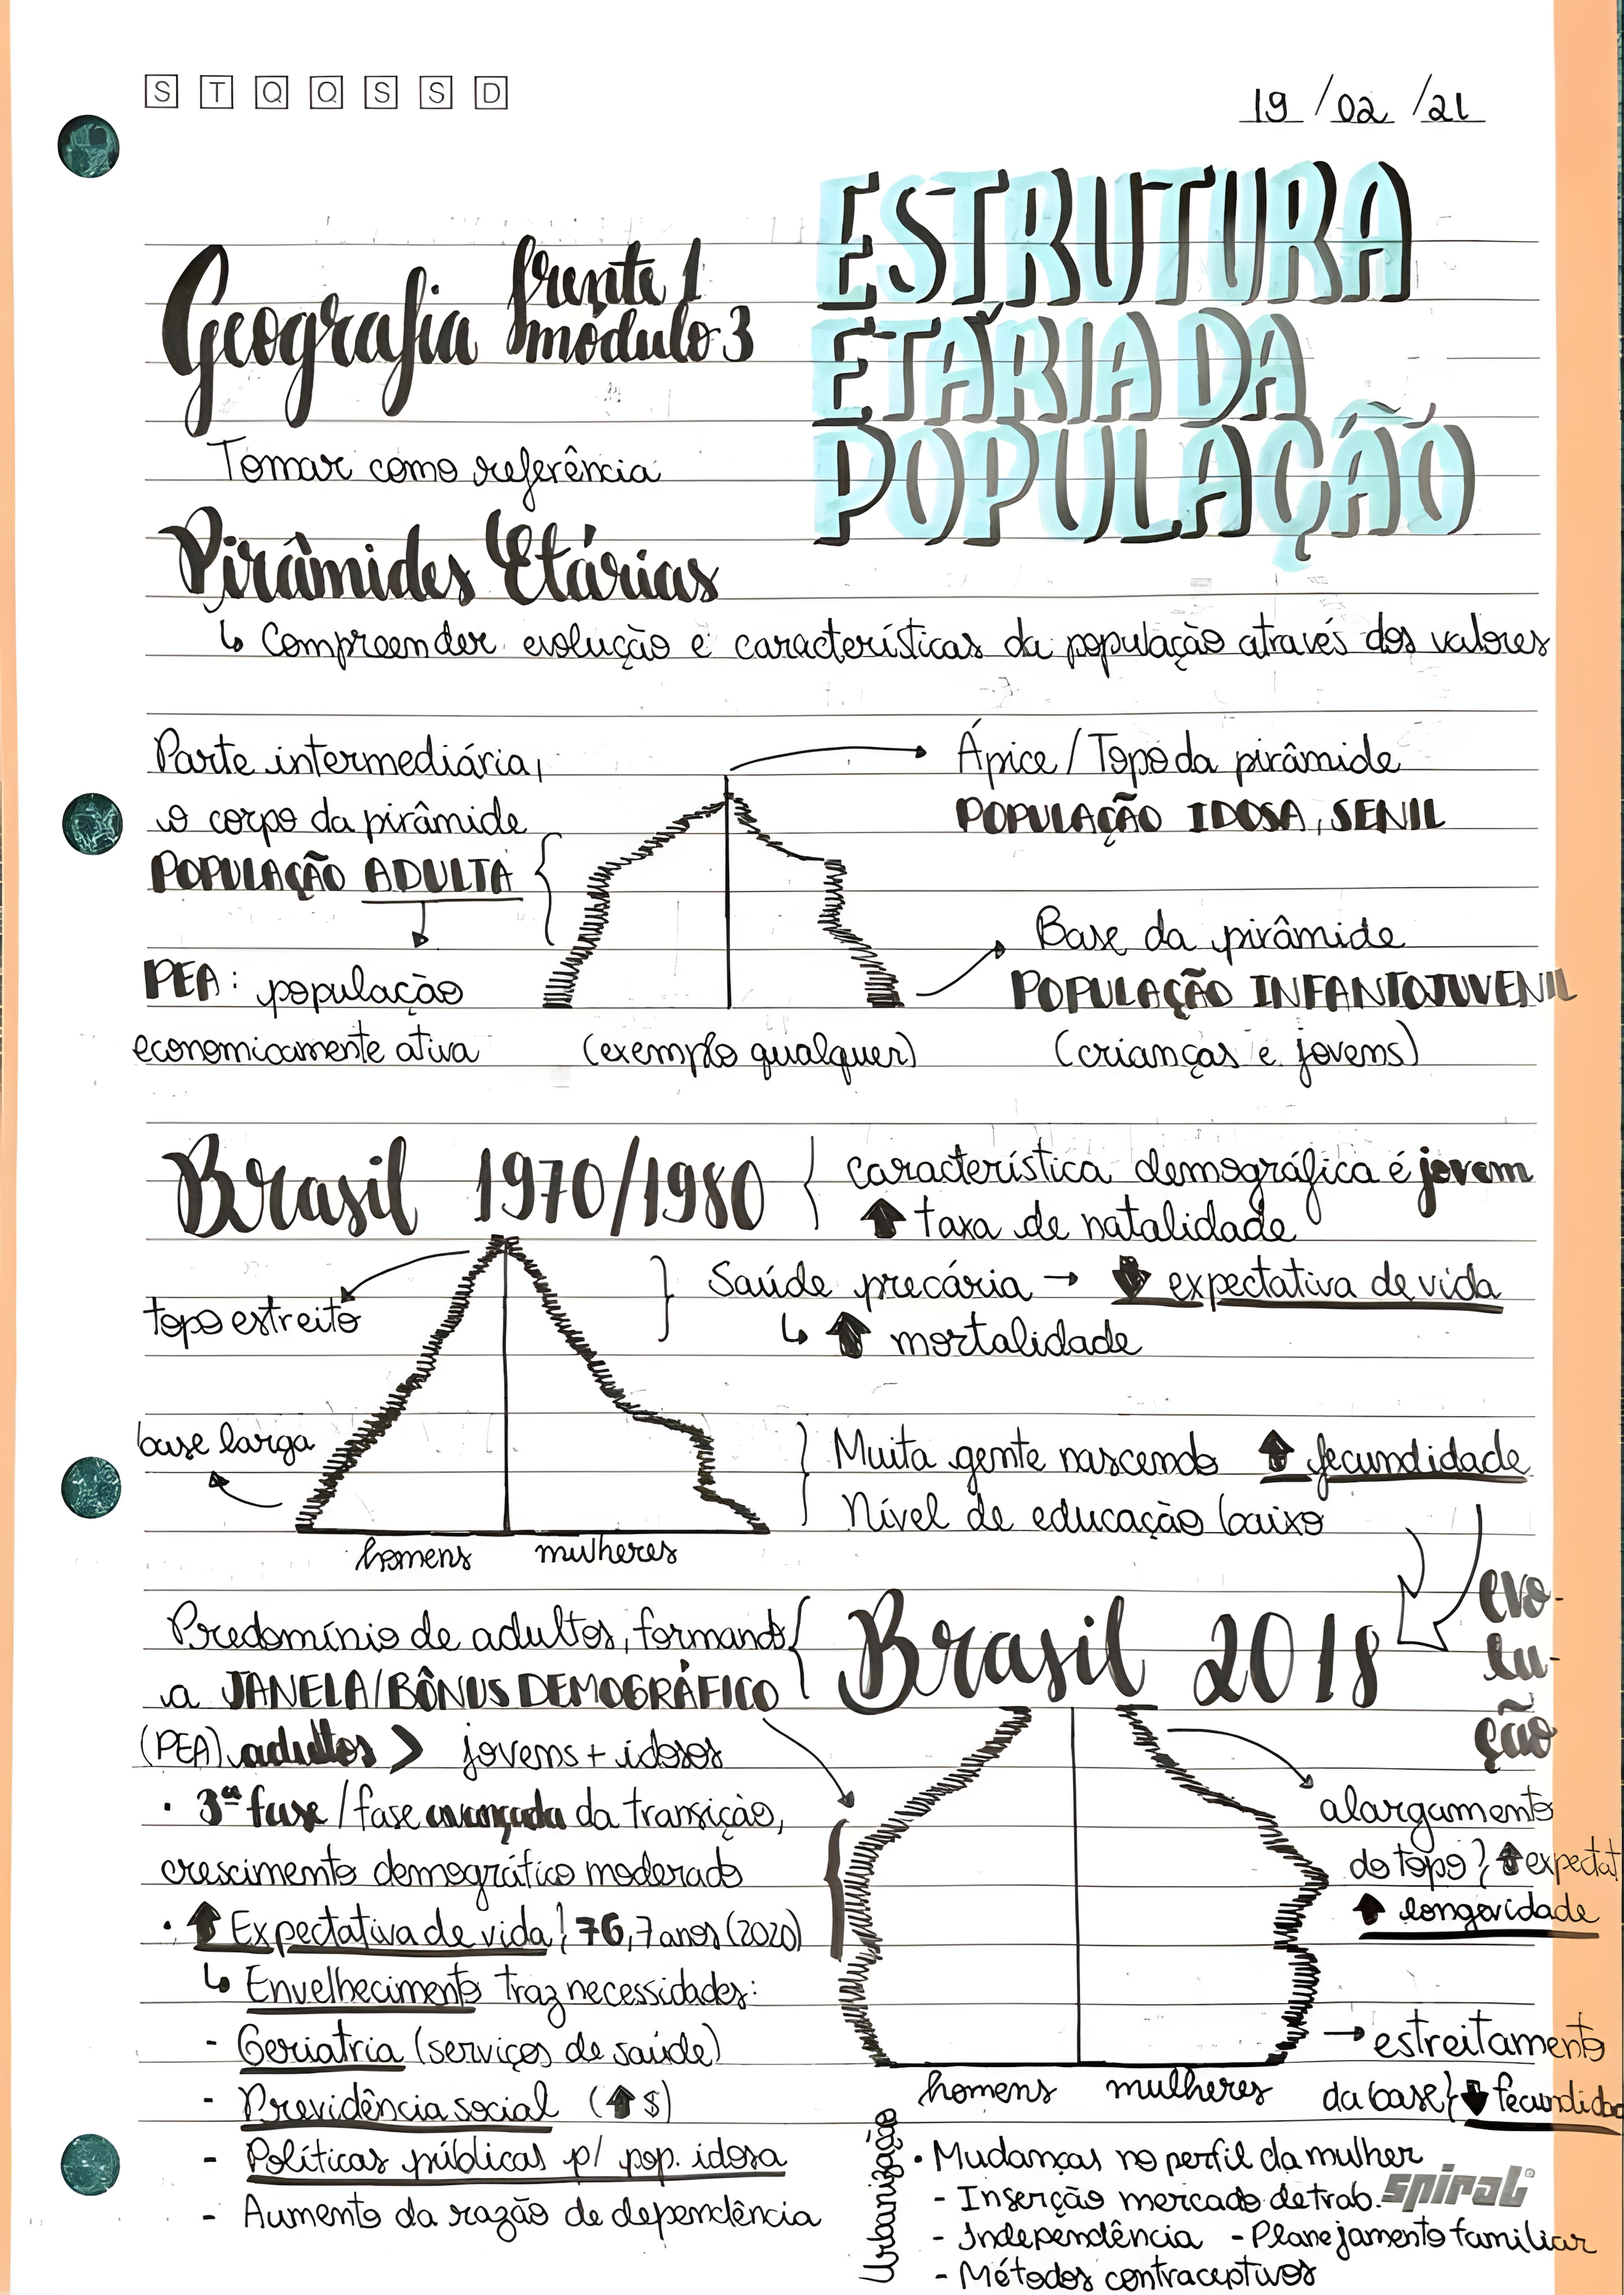 S T Q Q S S D
19/02/21
ESTRUTURA
ETÁRIA DA
POPULAÇÃO
Geografia frente 1
módulo 3
Tomar como referência
Pirâmides Etárias
↳ Compreender evolução e características da população através dos valores
Parte intermediária,
o corpo da pirâmide
POPULAÇÃO ADULTA
PEA: população
economicamente ativa
(exemplo qualquer)
Ápice/Topo da pirâmide
POPULAÇÃO IDOSA, SENIL
Base da pirâmide
POPULAÇÃO INFANTOJUVENIL
(crianças e jovens)
Brasil 1970/1980
característica demográfica é jovem
↑ taxa de natalidade
topo estreito
Saúde precária → ↓ expectativa de vida
↳ ↑ mortalidade
base larga
Muita gente nascendo ↑ fecundidade
Nível de educação baixo
homens mulheres
evo-
lu-
ção
Brasil 2018
Predomínio de adultos, formando
a JANELA/BÔNUS DEMOGRÁFICO
(PEA) adultos > jovens + idosos
• 3ª fase/fase avançada da transição,
crescimento demográfico moderado
• ↑ Expectativa de vida } 76,7 anos (2020)
↳ Envelhecimento traz necessidades:
- Geriatria (serviços de saúde)
- Previdência social (↑$)
- Políticas públicas p/ pop. idosa
- Aumento da razão de dependência
alargamento
do topo } ↑ expectat
↑ longevidade
→ estreitamento
da base } ↓ fecundidad
homens mulheres
Urbanização
• Mudanças no perfil da mulher
- Inserção mercado de trab.
- Independência - Planejamento familiar
- Métodos contraceptivos
spiral